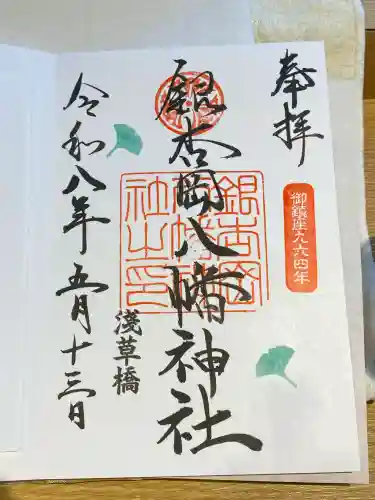 奉拝
御鎮座九六四年
銀杏岡八幡神社
銀杏岡
八幡神
社之印
淺草橋
令和八年五月十三日